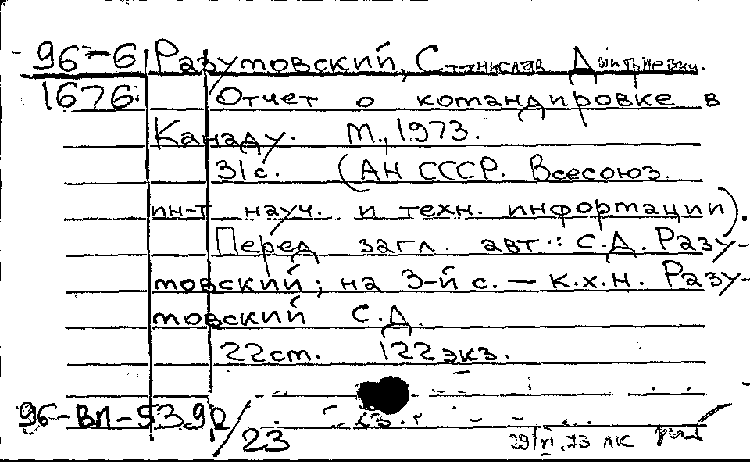 96-6 Разумовский, Станислав Дмитриевич.
1676 Отчет о командировке в
Канаду. М., 1973.
31 с. (АН СССР. Всесоюз.
ин-т науч. и техн. информации).
Перед загл. авт.: С.Д. Разу-
мовский; на 3-й с. — к.х.н. Разу-
мовский С.Д.
22 см. 122 экз.
96-ВЛ-5390/23
73 ЛК